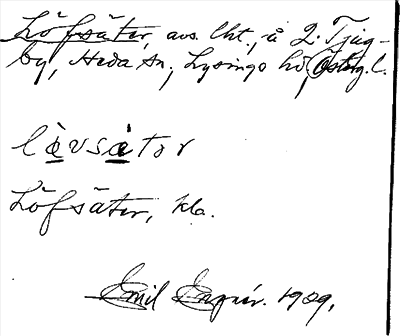 Löfsäter, avs. lht., å 2. Tjug-
by, Heda sn., Lysings hd, Österg. l.
lὰvsὰtər
Löfsäter, kla.
Emil Enqvir. 1909.